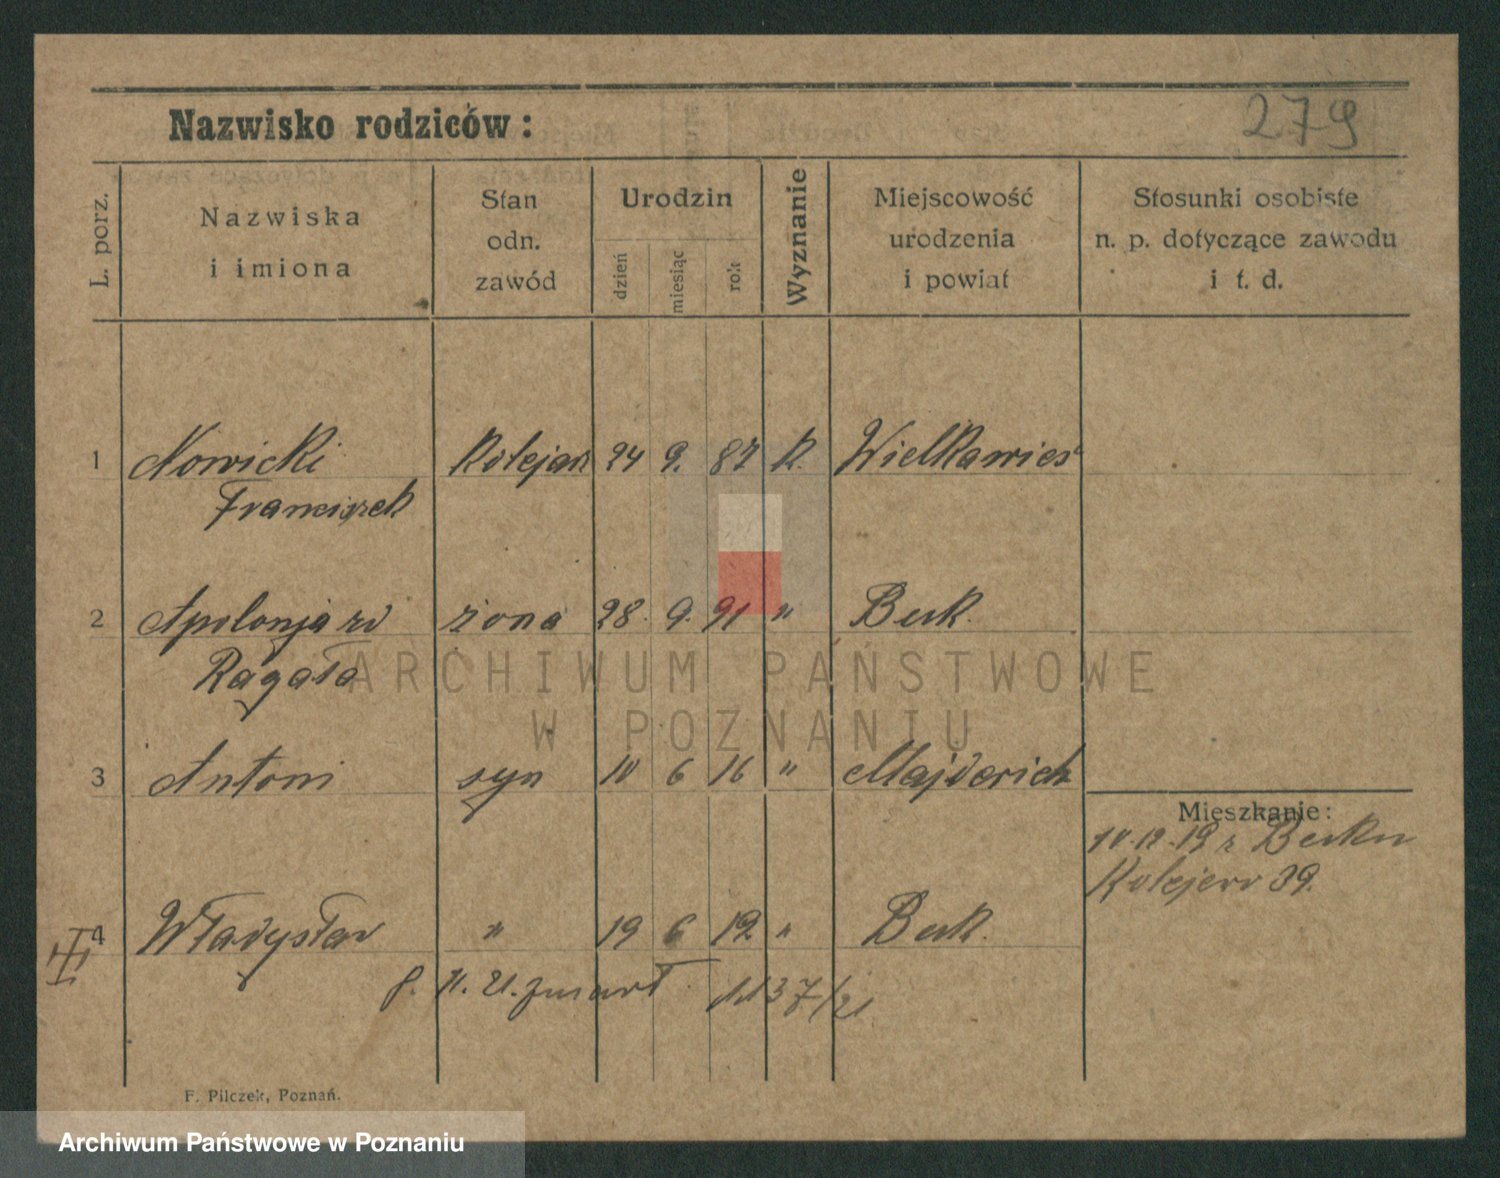 279
Nazwisko rodziców:
L. porz.
Nazwiska
i imiona
Stan
odn.
zawód
Urodzin
dzień
miesiąc
rok
Wyznanie
Miejscowość
urodzenia
i powiat
Stosunki osobiste
n. p. dotyczące zawodu
i t. d.
1 Nowicki Kolejarz 24 9. 87 K. Wielkawieś
Franciszek
2 Apolonja żona 28. 9. 91 " Berk.
Ragała
ARCHIWUM PAŃSTWOWE
W POZNANIU
3 Antoni syn 10 6 16 " Majderich
Mieszkanie:
10.12.19 z Berku
Kolejew 39.
4 Władysław " 19 6 12 " Berk.
11. 21. zmarł 1137/21
F. Pilczek, Poznań.
Archiwum Państwowe w Poznaniu